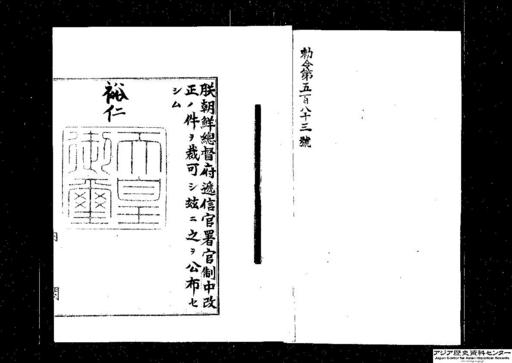 勅令第五百八十三號
朕朝鮮總督府遞信官署官制中改
正ノ件ヲ裁可シ玆ニ之ヲ公布セ
シム
裕仁
天皇
御璽
内
閣
アジア歴史資料センター
Japan Center for Asian Historical Records